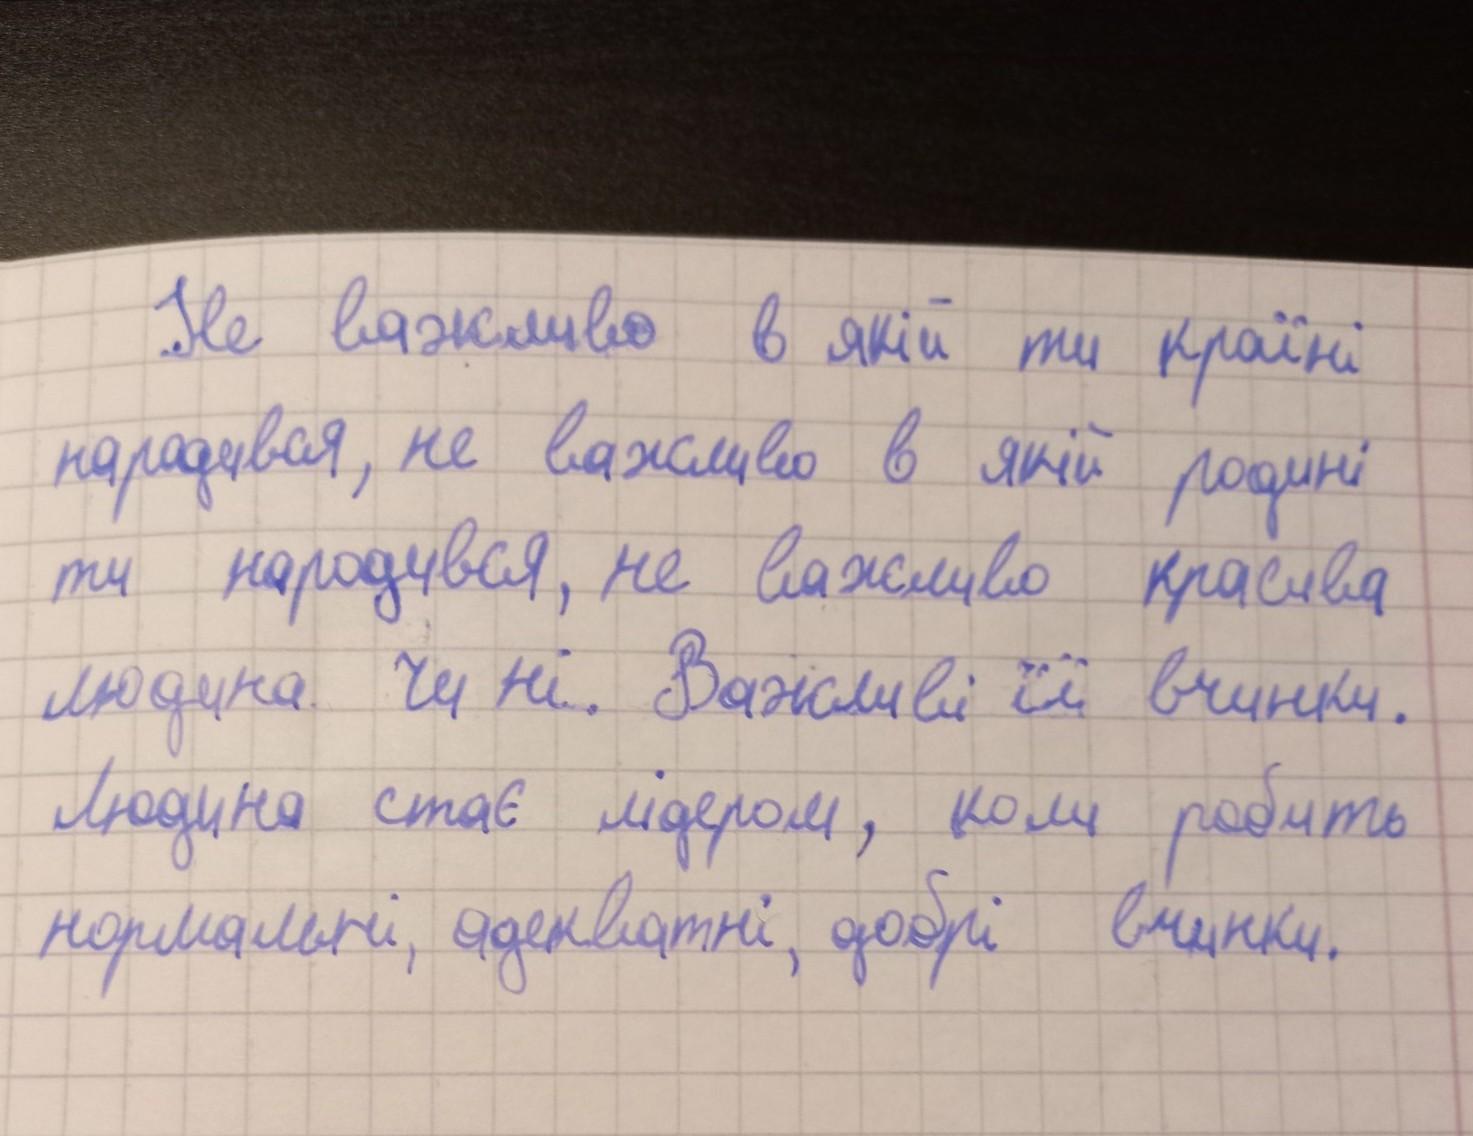 Не важливо в якій ти країні
народився, не важливо в якій родині
ти народився, не важливо красива
людина чи ні. Важливі її вчинки.
Людина стає лідером, коли робить
нормальні, адекватні, добрі вчинки.